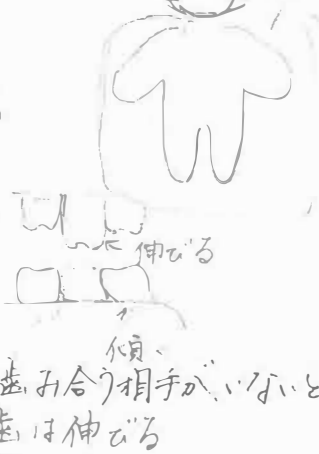 伸びる
傾、
歯み合う相手が、いないと
歯は伸びる